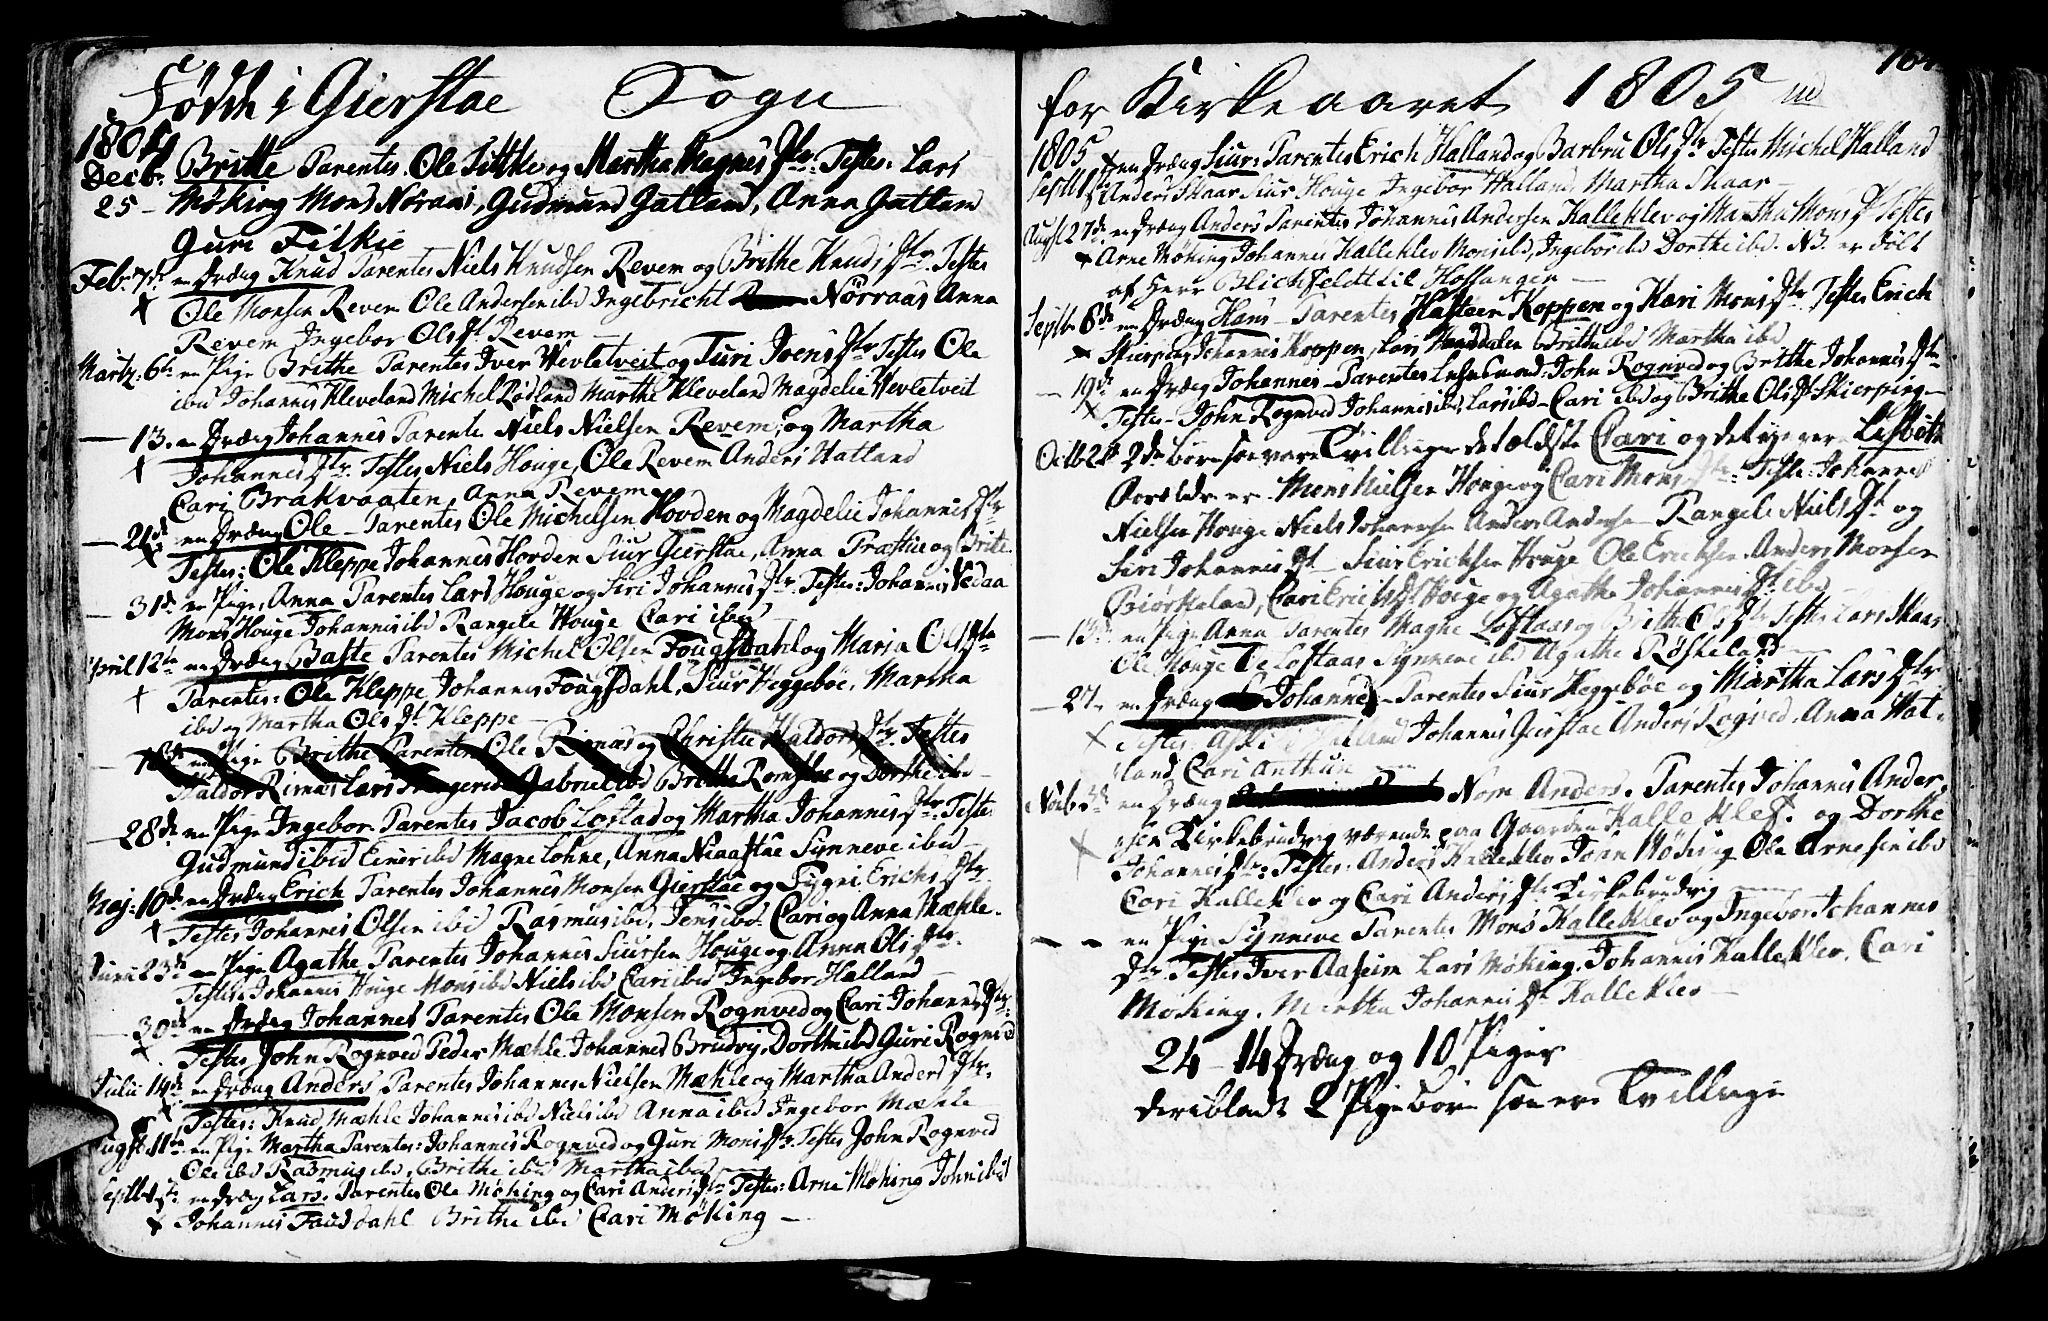 Fødde i Gierstae Sogn
1804
Decb: Britte Parentes Ole Sittke og Martha Magnes Dtr: Testes: Lars
25 – Møking Mons Nøraas, Gudmund Gatland, Anna Gatland
Guri Filkie
Feb: 7de en Dræng Knud Parentes Niels Knudsen Revem og Brithe Knuds Dtr. Testes
Ole Monsen Revem Ole Andersen ibd Ingebricht Nørraas Anna
Revem Ingebor Ols Dt Revem
Martz: 6te en Pige Brithe Parentes Iver Hevletveit og Turi Joens Dtr Testes Ole
ibd Johannes Kleveland Michel Rødland Marthe Kleveland Magdelie Hevletveit
— 13. en Dræng Johannes Parente Niels Nielsen Revem, og Martha
Johannes Dtr. Testes Niels Houge, Ole Revem Anders Hatland
Cari Brakvaaten, Anna Revem
— 21de en Dræng Ole – Parentes Ole Michelsen Hovden og Magdelie Johannes Dtr
Testes: Ole Kleppe Johannes Hovden Siur Gierstae, Anna Præstlie og Brite
— 31de en Pige, Anna Parentes Lars Houge og Siri Johannes Dtr. Testes: Johannes Nedaa
Mons Houge Johannes ibd Rangele Houge Cari ibd
April 12te en Dræng Baste Parentes Michel Olsen Fougsdahl og Maria Ols Dtr
Parentes: Ole Kleppe Johannes Fougsdahl, Siur Heggebøe, Martha
ibd og Martha Ols Dt Kleppe
en Pige Brithe Parentes Ole Rimas og Christie Haldors Dtr. Testes
Haldor Rimas Lars Gabriel ibd Britha og Dorthe ibd
— 28de en Pige Ingebor Parentes Jacob Lofstad og Martha Johannes Dtr. Testes
Gudmund ibid Einer ibd Magne Lohne, Anna Niaastae Synneve ibid
Maj: 10de en Dræng Erich Parentes Johannes Monsen Gierstae og Sygni Erichs Dtr
Testes Johannes Olsen ibid Rasmus ibd, Jens ibd Cari og Anna Mæhle.
Junii 23de en Pige Agathe Parentes Johannes Siursen Houge og Anna Ols Dtr.
Testes: Johannes Houge Mons ibd Niels ibd Cari ibd Ingebor Halland
— 30de en Dræng Johannes Parentes Ole Monsen Rognved og Cari Johannes Dtr:
Testes John Rognved Peder Mæhle Johannes Brudvig, Dorthe ibd Guri Rognved
Julii 14de en Dræng Anders Parentes Johannes Nielsen Mæhle og Martha Anders Dtr.
Testes: Knud Mæhle Johannes ibd Niels ibd Anna ibid Ingebor Mæhle
Augst: 11te en Pige Martha Parentes: Johannes Rognved og Guri Mons Dtr. Testes John Rognved
Ole ibd Rasmus ibd, Brithe ibid Martha ibid
Septb: 1ste en Dræng Lars. Parentes Ole Møking og Cari Anders Dtr Testes: Arne Møking John ibid
Johannes Fausdahl Brithe ibd Cari Møking
for Kirkeaaret 1805
1805 en Dræng Siur: Parentes Erich Halland og Barbru Ols Dtr Testes Michel Halland
Septb 1ste Anders Skaar Siur Houge Ingebor Halland Martha Skaar
Augst 27de en Dræng Anders Parentes Johannes Andersen Kalleklev og Martha Mons Dt Testes
Arne Møking Johannes Kalleklev Mons ibd, Ingebor ibd Dorthe ibd. NB. er døbt
af Herr Blichfeldt til Hossanger
Septb: 8de en Dræng Hans – Parentes Hasteen Koppen og Kari Mons Dtr Testes Erich
Skierping Johannes Koppen, Lars Handdalen Brithe ibd Martha ibd
— 19de en Dræng Johannes – Parentes Lehnsmand John Rognved og Brithe Johannes Dtr
Testes – John Rognved Johannes ibd, Lars ibd – Cari ibd og Brithe Ols Dt Skierping
Octb 2de 2de børn som vare Tvillinger det ældste Cari og det yngere Lisbeth
Forældre er Mons Nielsen Houge og Cari Mons Dtr: Teste: Johannes
Nielsen Houge Niels Johannesen Anders Andersen Rangele Niels Dt og
Siri Johannes Dt – Siur Ericksen Houge Ole Ericksen Anders Monsen
Biørkeland, Cari Erichs Dt Houge og Agathe Johannes Dt ibd
— 13de en Pige Anna Parentes Magne Lofstaas og Brith Ols Dtr Testes Lars Skaar
Ole Houge Ole Lofstaas Synneve ibd Agathe Røskeland
— 27. en Dræng Johannes – Parentes Siur Heggebøe og Martha Lars Dtr
Testes: Halland Johannes Gierstae Anders Rogned, Anna Hat-
land, Cari Anthun
Novb. 3de en Dræng Nom Anders. Parentes Johannes Ander-
sen Kirkebrudvig værende paa Gaarden Kalleklef. og Dorthe
Johannes Dtr: Testes. Anders Kalleklev John Møking Ole Arnesen ibd
Cari Kalleklev og Cari Anders Dtr Kirkebrudvig
— — en Pige Synneve Parentes Mons Kalleklev og Ingebor Johannes
Dtr. Testes Iver Aaseim Lars Møking, Johannes Kalleklev, Cari
Møking. Martha Johannes Dt Kalleklev
24 – 14 Dræng og 10 Piger
deriblandt 2 Pigebørn som ere Tvillinge